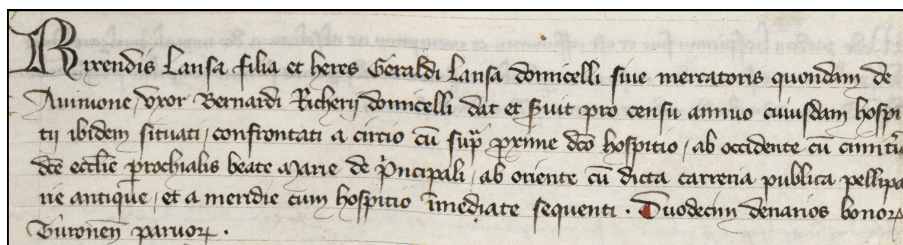 Rixendis Lansa filia et heres Geraldi Lansa domicelli siue mercatoris quondam de
Auinione, vxor Bernardi Richerij domicelli dat et seruit pro censu annuo cuiusdam hospi
tij ibidem situati, confrontati a circio cu sup proxime dco hospitio, ab occidente cum cimiti
dce ecclie parochialis beate Marie de Pncipali, ab oriente cu dicta carreria publica pellipa
rie antique, et a meridie cum hospitio imediate sequenti. Duodecim denarios bonor
Turonen paruor.